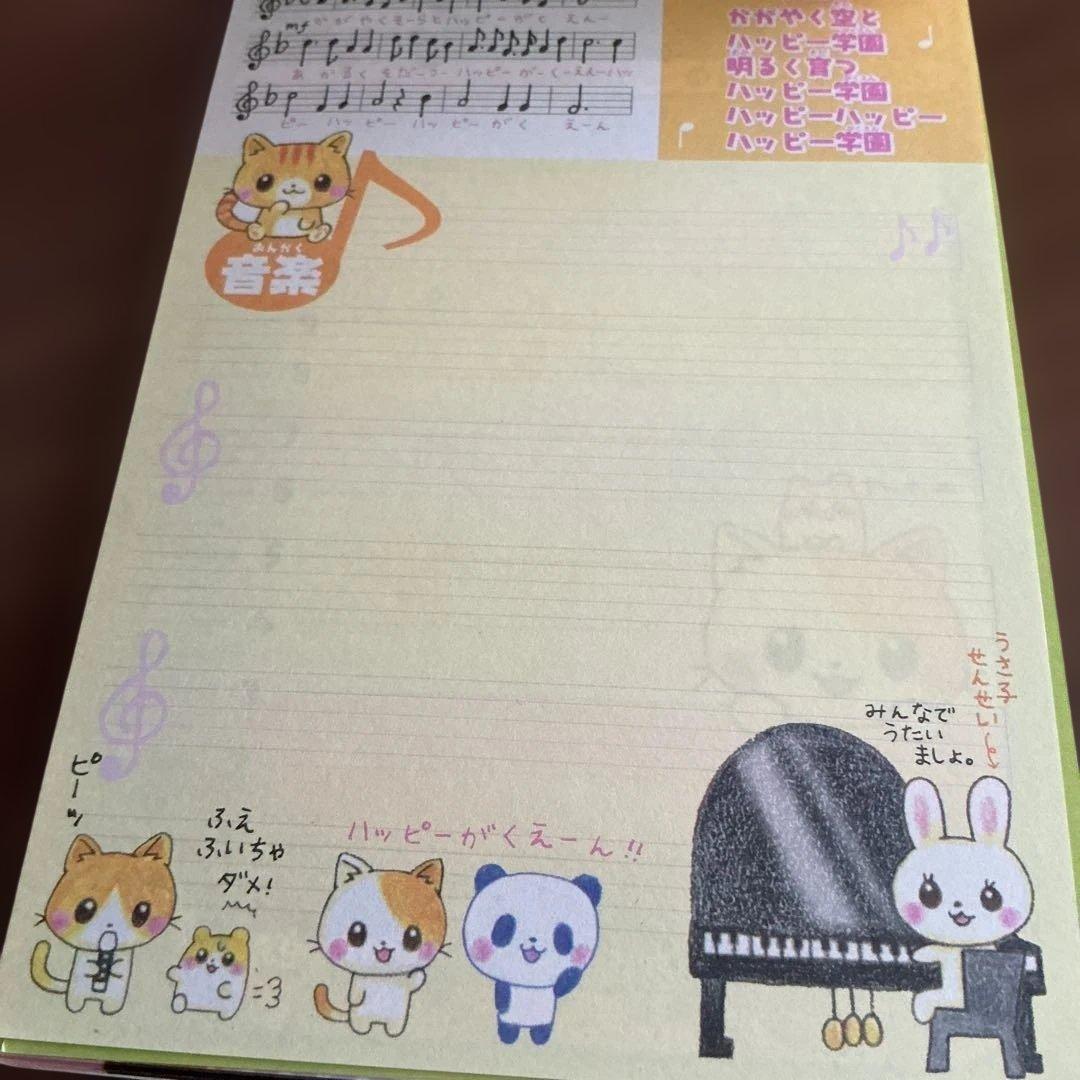 かがやくそーらとハッピーがく えんー
mf
あかるくそだーつーハッピーがーくーえんーハッ
ピー ハッ ピー ハッ ピー が く えーん
かがやく空と
ハッピー学園
明るく育つ
ハッピー学園
ハッピーハッピー
ハッピー学園
おんがく
音楽
うさ子
せんせい
みんなで
うたい
ましょ。
ピーッ
ふえ
ふいちゃ
ダメ!
ハッピーがくえーん!!